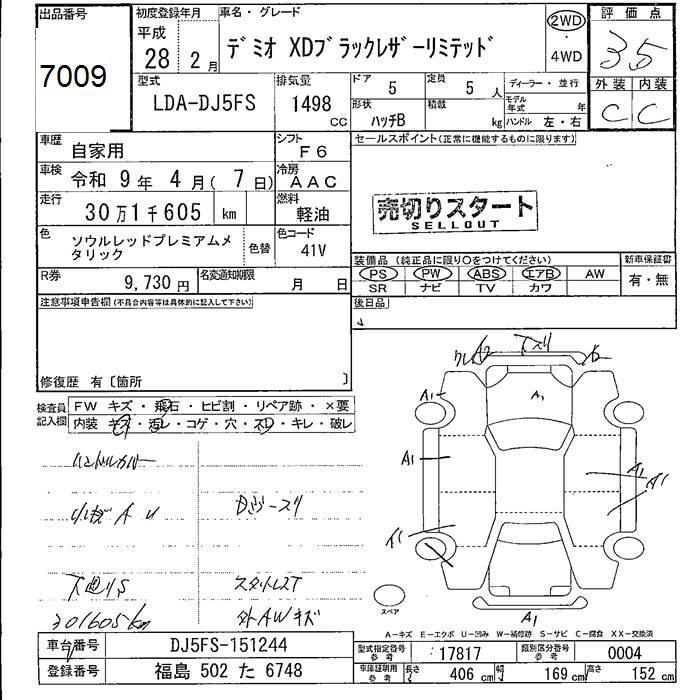 出品番号
7009
初度登録年月
平成
28 2月
車名・グレード
デミオ XDブラックレザーリミテッド
2WD
・
4WD
評価点
3.5
外装 内装
C C
型式
LDA-DJ5FS
排気量
1498 CC
ドア
5
定員
5 人
ディーラー・並行
形状
ハッチB
積載
kg
モデル年式 年
ハンドル 左・右
車歴
自家用
シフト
F6
車検
令和 9年 4月( 7日)
冷房
AAC
走行
30万1千605 km
燃料
軽油
色
ソウルレッドプレミアムメタリック
色替
色コード
41V
R券
9,730 円
名変通知期限
月 日
セールスポイント(正常に機能するものに限ります)
売切りスタート
SELLOUT
装備品 (純正品に限り○をつけてください)
PS PW ABS エアB AW
SR ナビ TV カワ
新車保証書
有・無
後日品
注意事項申告欄(不具合内容等は具体的に記入して下さい)
修復歴 有〔箇所 〕
検査員記入欄
FW キズ・飛石・ヒビ割・リペア跡・×要
内装 キズ・汚レ・コゲ・穴・スレ・キレ・破レ
ハンドルカバー
小キズ A U
下廻りS
301605km
スタットレスT
外AWキズ
下スリ
A2
A1
A1
A1
A1
A1
A1
スペア
A-キズ E-エクボ U-凹み W-補修跡 S-サビ C-腐食 XX-交換済
車台番号
DJ5FS-151244
登録番号
福島 502 た 6748
型式指定番号 参考
17817
類別区分番号 参考
0004
車庫証明用 参考
長さ 406 cm
幅 169 cm
高さ 152 cm